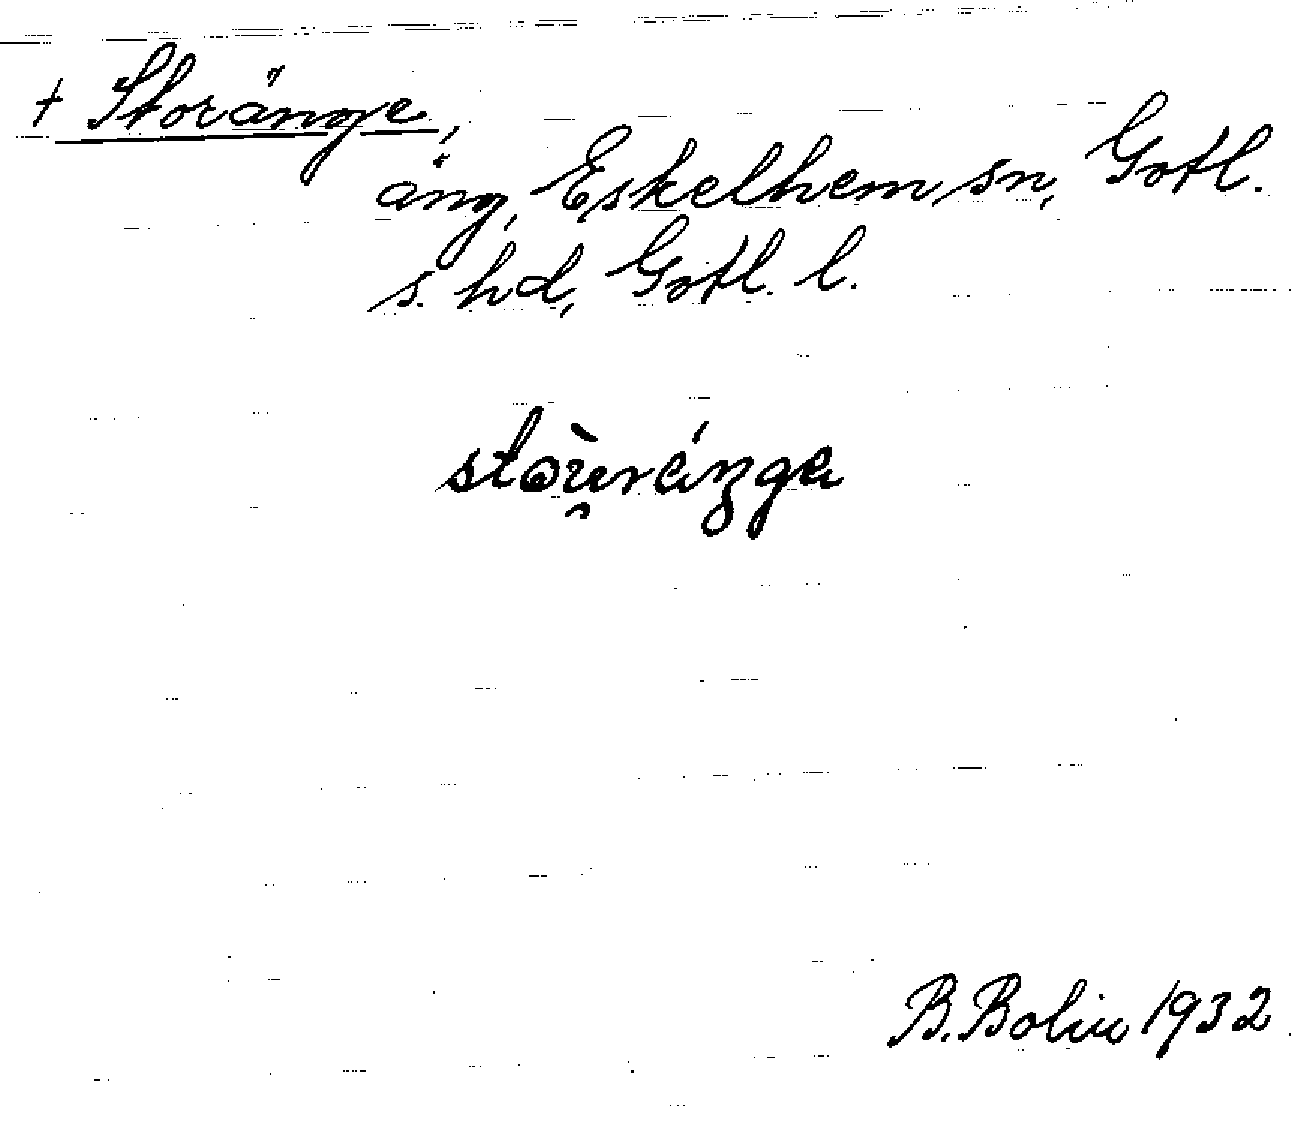 + Storänge,
äng, Eskelhem sn, Gotl.
s. hd, Gotl. l.
B. Bolin 1932